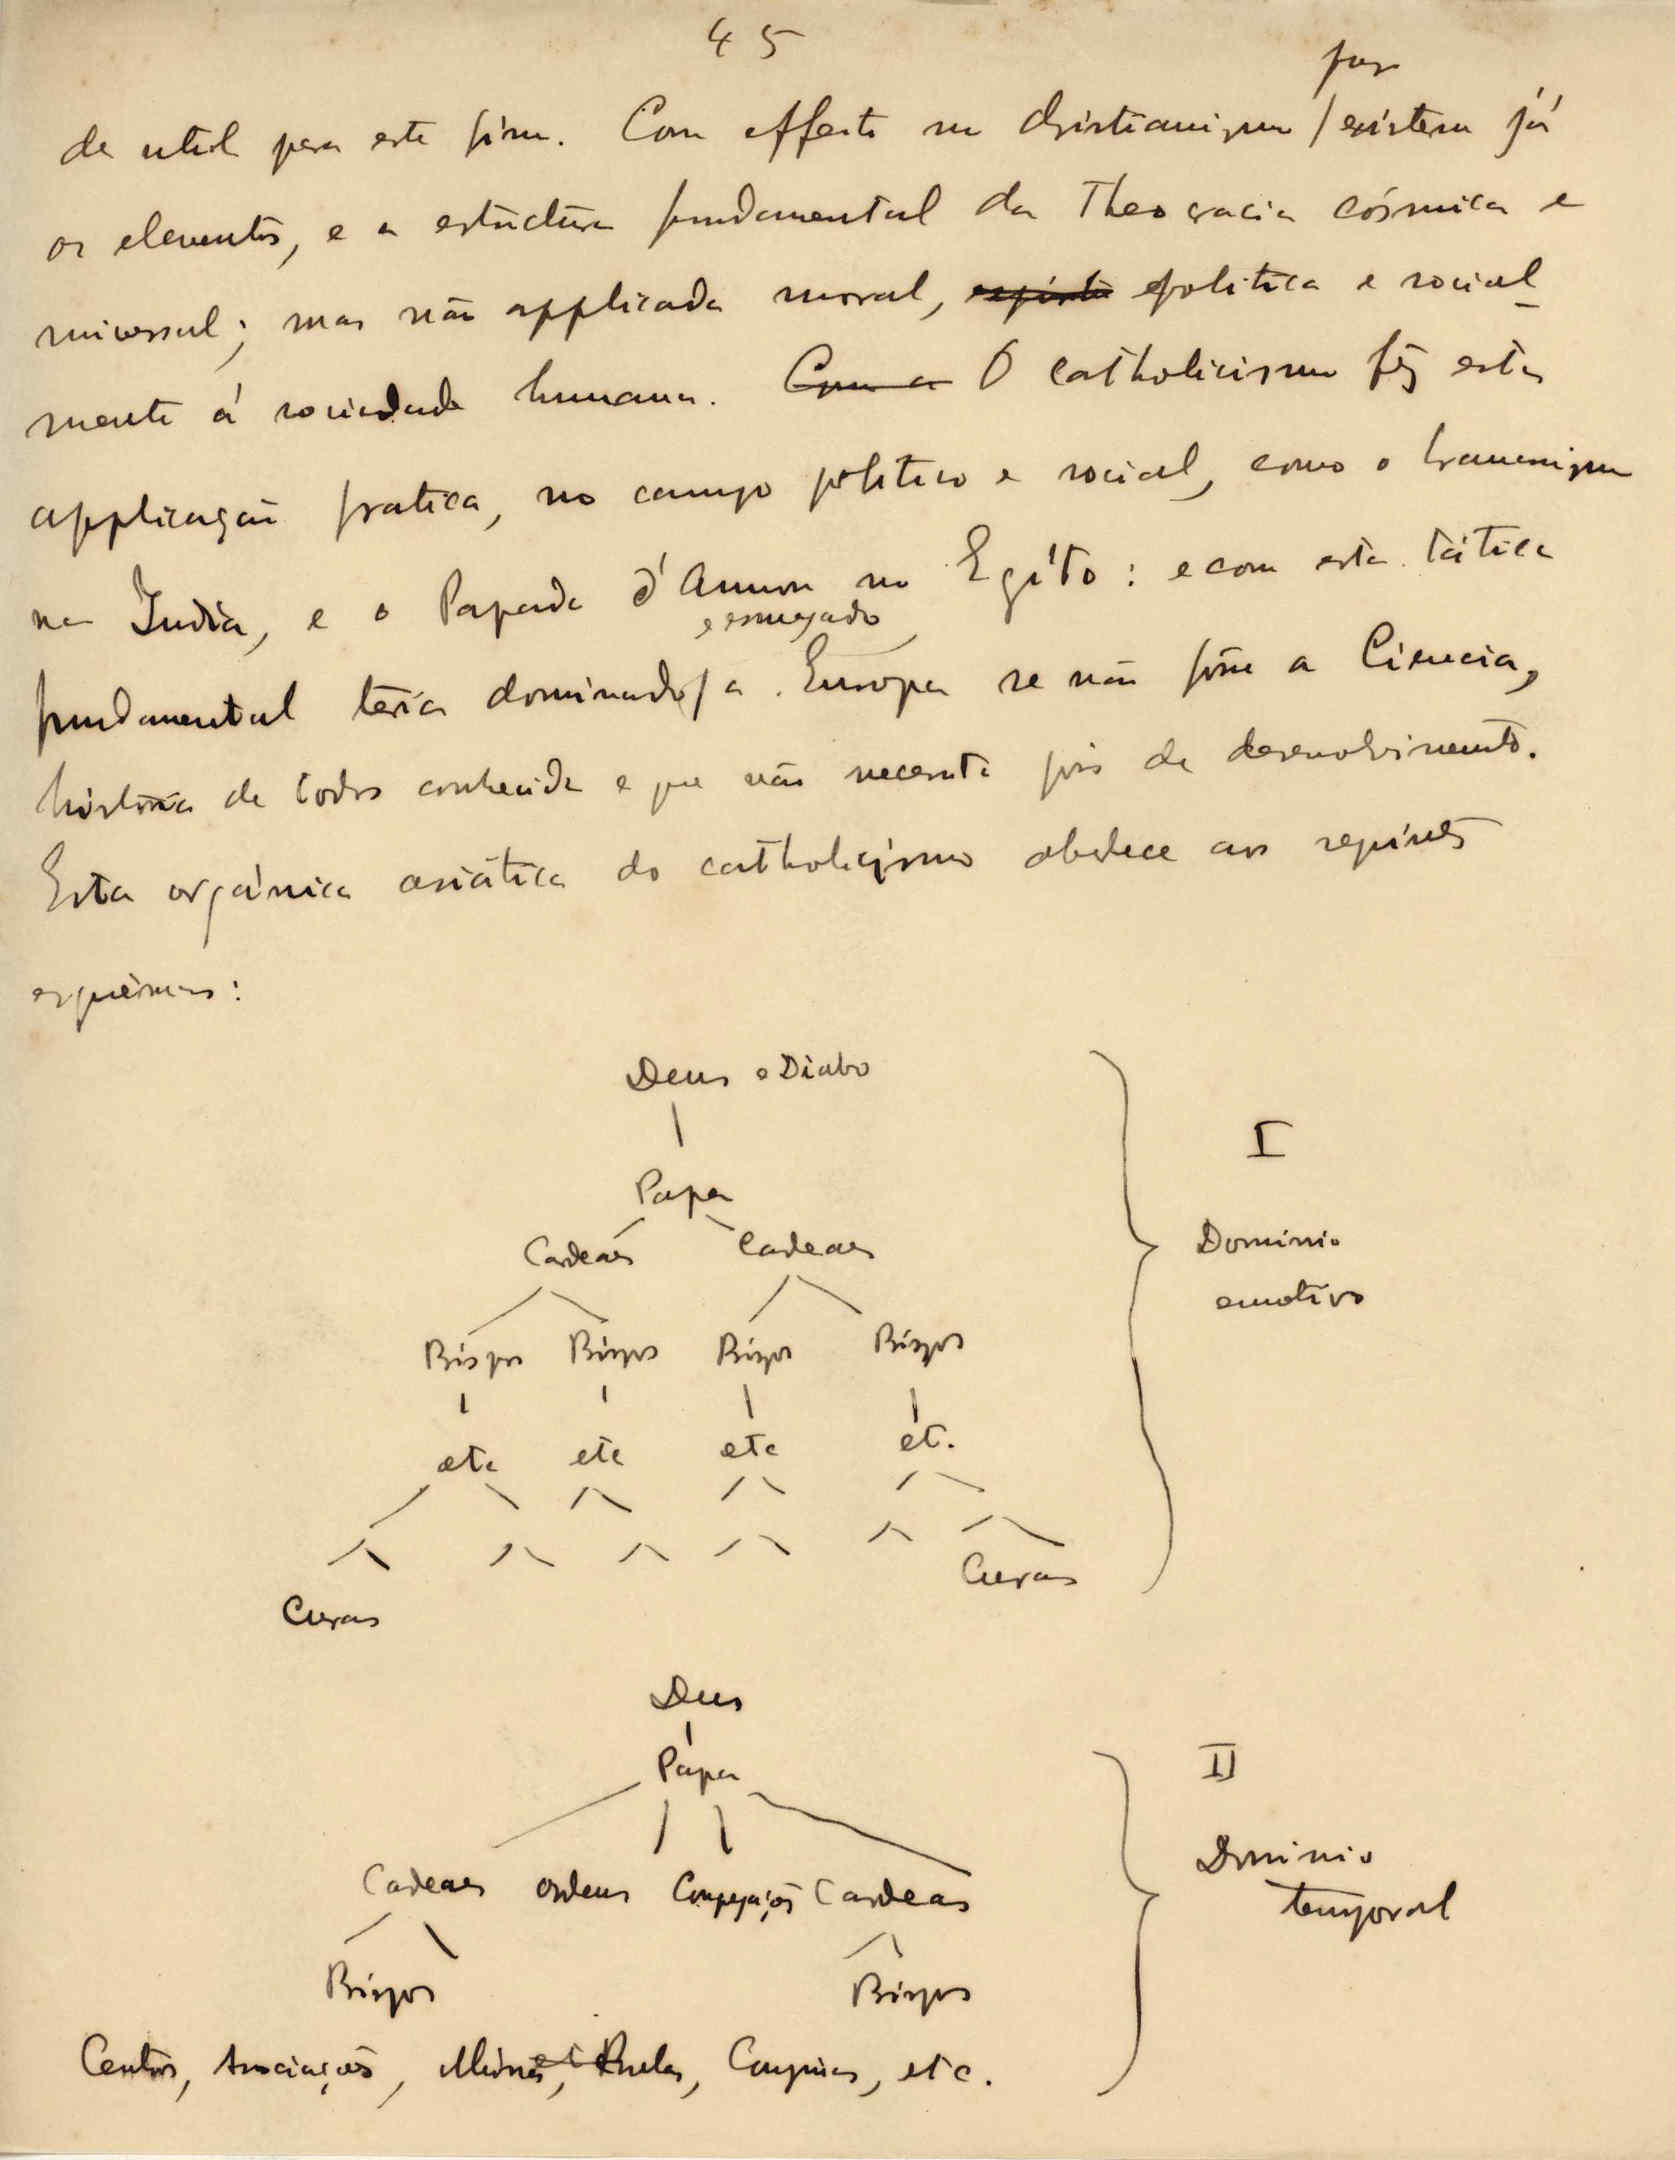 45
de util para este fim. Com effeito no Christianismo por existem já
os elementos, e a estructura fundamental da Theocracia cósmica e
universal; mas não applicada moral, politica e social
mente á sociedade humana. Com a O catholicismo fez esta
applicação pratica, no campo politico e social, como o bramanismo
na India, e o Papado d'Ammon no Egíto: e com esta tática
e esmagado
fundamental teria dominado a Europa se não fôra a Ciencia,
história de todos conhecida e que não necessita pois de desenvolvimento.
Esta orgánica asiática do catholicismo obedece aos seguintes
esquêmas:
Deus e Diabo
Papa
Cardeaes Cardeaes
I
Dominio
emotivo
Bispos Bispos Bispos Bispos
etc etc etc et.
Curas
Curas
Deus
Papa
II
Dominio
temporal
Cardeaes ordens Congregações Cardeaes
Bispos Bispos
Centros, Associações, etc.